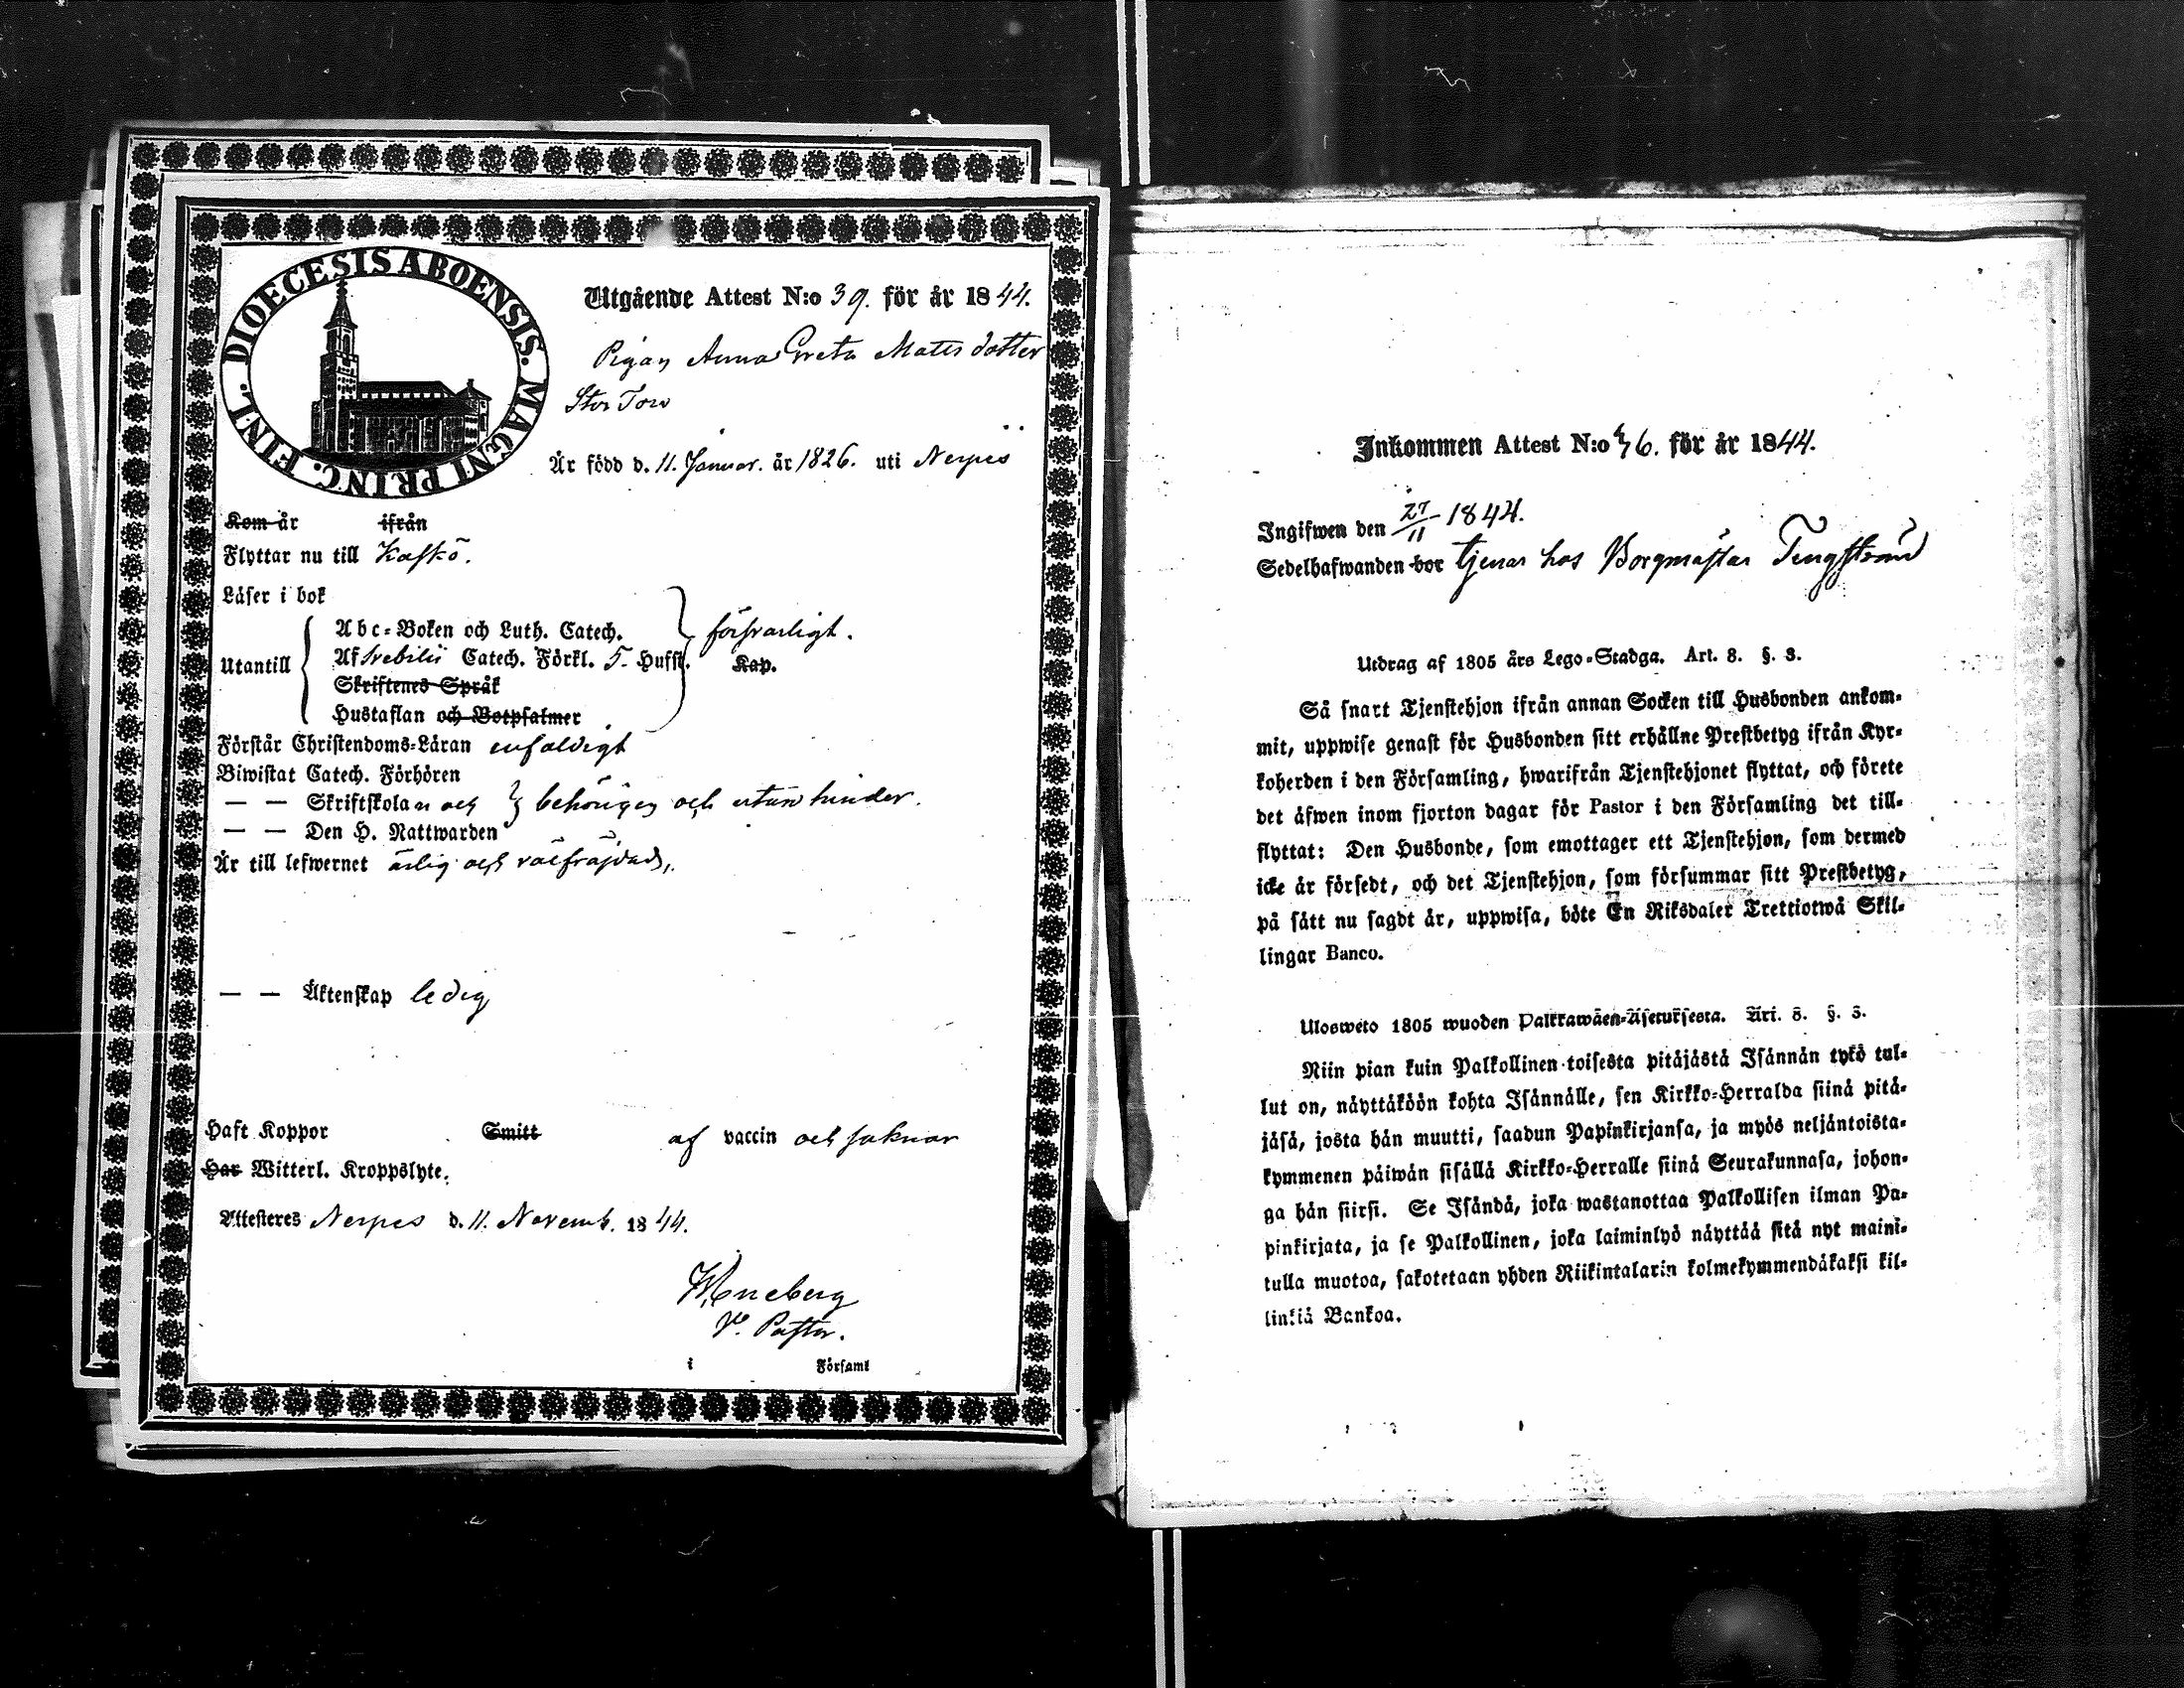 DIOECESIS ABOENSIS. MAGNI PRINC. FINL.
Utgående Attest N:o 39. för år 1844.
Pigan Anna Greta Mattsdotter
Stor Tow
Är född d. 11. Januar. år 1826. uti Nerpes
Kom år ifrån
Flyttar nu till Kaskö.
Läser i bok
Abc-Boken och Luth. Catech.
försvarligt.
Utantill
Af Svebilii Catech. Förkl. 5. Hufst. Kap.
Skriftenes Språk
Hustaflan och Botpsalmer
Förstår Christendoms-Läran enfaldigt
Biwistat Catech. Förhören
— — Skriftskolan och behörigen och utan hinder.
— — Den H. Nattwarden
Är till lefwernet ärlig och välfräjdad,.
— — Äktenskap ledig
Haft Koppor Smitt af vaccin och saknar
Har Witterl. Kroppslyte.
Attesteres Nerpes d. 11. Novemb. 1844.
Weneberg
V. Pastor.
i Församl
Inkommen Attest N:o 76. för år 1844.
Ingifwen den 27/11 1844.
Sedelhafwanden bor tjenar hos Borgmästar Tengström
Utdrag af 1805 års Lego-Stadga. Art. 8. §. 3.
Så snart Tjenstehjon ifrån annan Socken till Husbonden ankom-
mit, uppwise genast för Husbonden sitt erhållne Prestbetyg ifrån Kyr-
koherden i den Församling, hwarifrån Tjenstehjonet flyttat, och förete
det äfwen inom fjorton dagar för Pastor i den Församling det till-
flyttat: Den Husbonde, som emottager ett Tjenstehjon, som dermed
icke är försedt, och det Tjenstehjon, som försummar sitt Prestbetyg,
på sätt nu sagdt är, uppwisa, böte En Riksdaler Trettiotwå Skil-
lingar Banco.
Ulosweto 1805 wuoden Palkkawäen-Asetuksesta. Art. 8. §. 3.
Niin pian kuin Palkollinen toisesta pitäjästä Isännän tykö tul-
lut on, näyttäköön kohta Isännälle, sen Kirkko-Herralda siinä pitä-
jäsä, josta hän muutti, saadun Papinkirjansa, ja myös neljäntoista-
kymmenen päiwän sisällä Kirkko-Herralle siinä Seurakunnasa, johon-
ga hän siirsi. Se Isändä, joka wastanottaa Palkollisen ilman Pa-
pinkirjata, ja se Palkollinen, joka laiminlyö näyttää sitä nyt maini-
tulla muotoa, sakotetaan yhden Riikintalarin kolmekymmendäkaksi kil-
linkiä Bankoa.